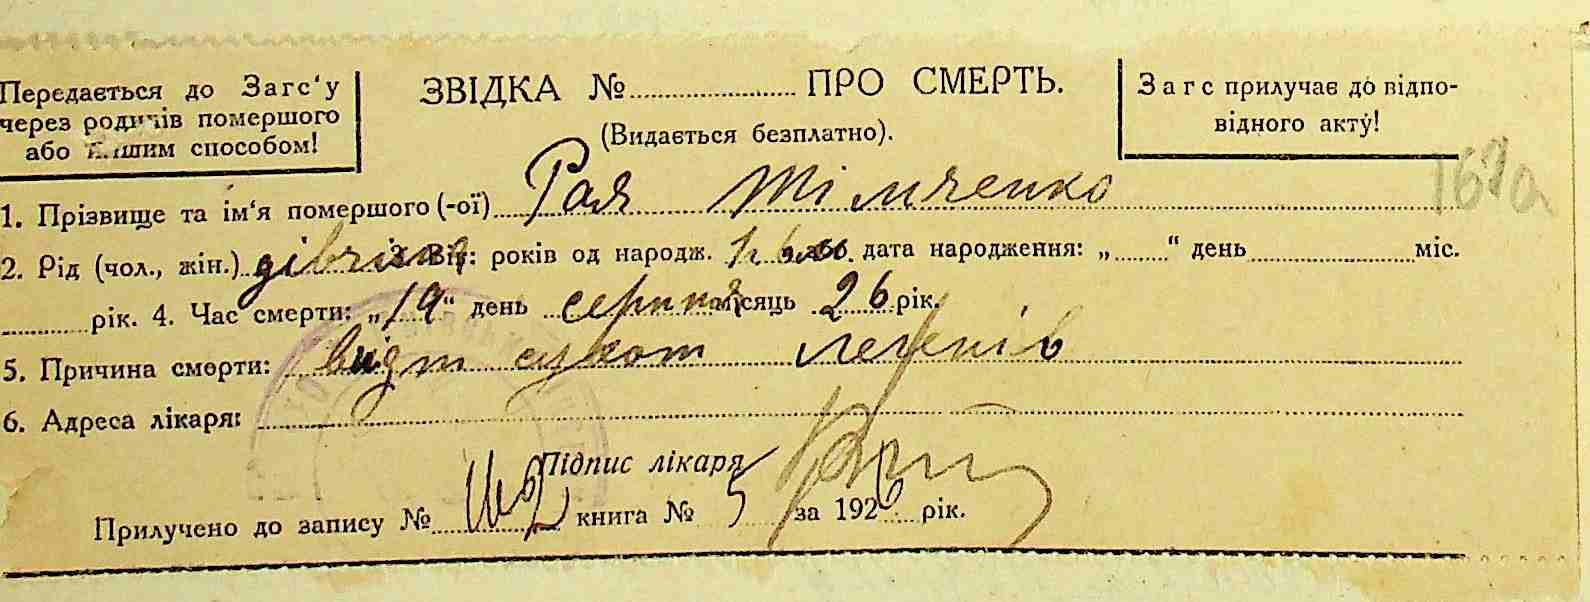 Передається до Загс'у
через родичів помершого
або іншим способом!
ЗВІДКА № ПРО СМЕРТЬ.
(Видається безплатно).
Загс прилучає до відпо-
відного акту!
1. Прізвище та ім'я помершого (-ої) Рая Тімченко
2. Рід (чол., жін.) дівчина 3. Вік: років од народж. або дата народження: „ “ день міс.
рік. 4. Час смерти: „19“ день серпня місяць 26 рік.
5. Причина смерти: від сухот легенів
6. Адреса лікаря:
Підпис лікаря
Прилучено до запису № книга № 5 за 1926 рік.